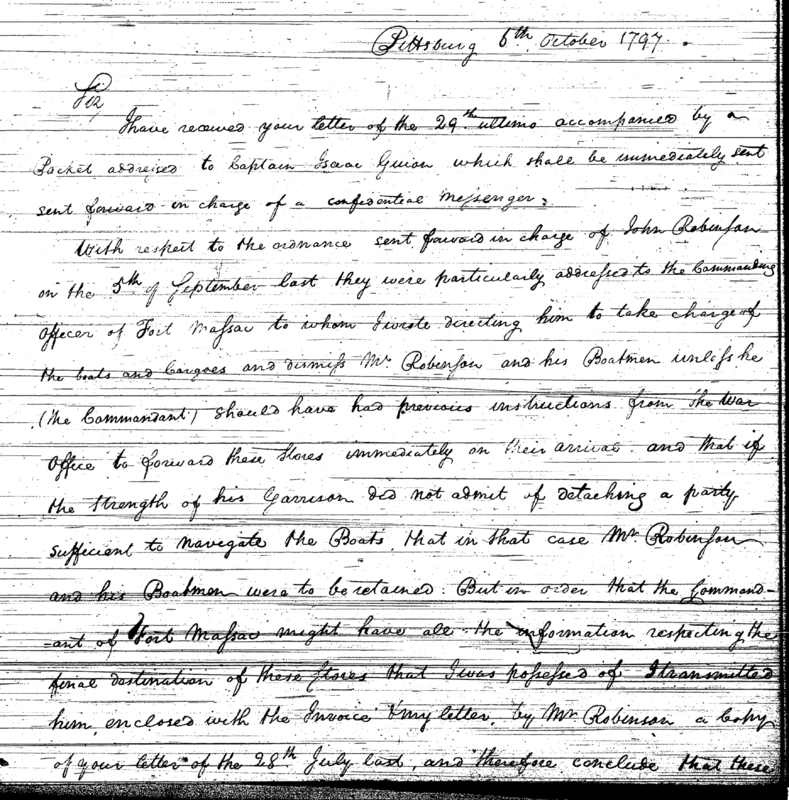 Pittsburg 6th October 1797.
Sir,
I have received your letter of the 29th ultimo accompanied by a
Packet addressed to Captain Isaac Guion which shall be immediately sent
sent forward in charge of a confidential Messenger.
With respect to the ordnance sent forward in charge of John Robinson
on the 5th of September last they were particularly addressed to the Commanding
Officer of Fort Massac to whom I wrote directing him to take charge of
the boats and Cargoes and dismiss Mr Robinson and his Boatmen unless he
(the Commandant) should have had previous instructions from the War
Office to forward these Stores immediately on their arrival and that if
the strength of his Garrison did not admit of detaching a party
sufficient to navigate the Boats, that in that case Mr Robinson
and his Boatmen were to be retained. But in order that the Command-
-ant of Fort Massac might have all the information respecting the
final destination of these Stores that I was possessed of I transmitted
him, enclosed with the Invoice & my letter, by Mr Robinson a Copy
of your letter of the 28th July last, and therefore conclude that these